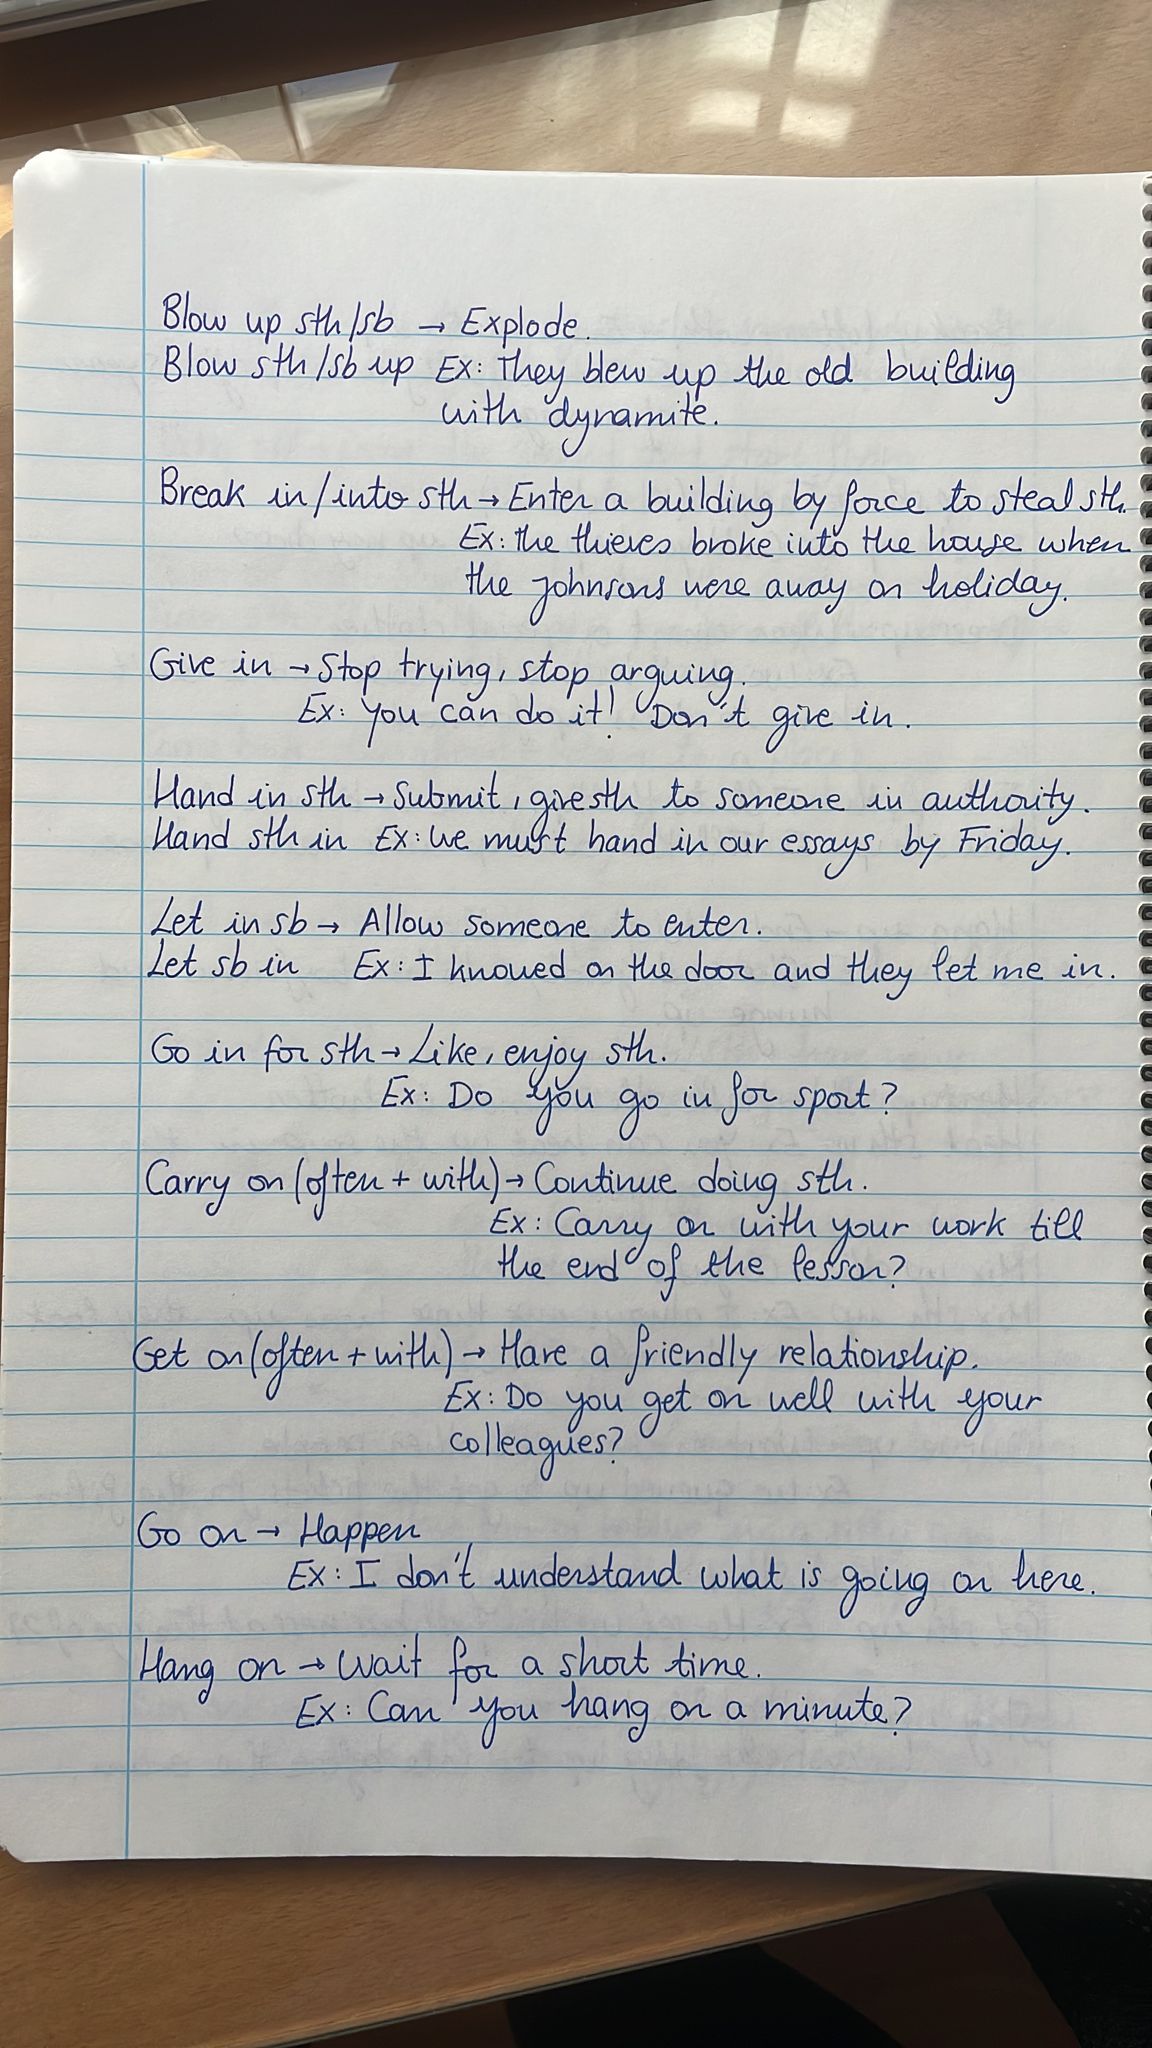 Blow up sth/sb → Explode.
Blow sth/sb up Ex: They blew up the old building
with dynamite.
Break in/into sth → Enter a building by force to steal sth.
Ex: the thieves broke into the house when
the Johnsons were away on holiday.
Give in → Stop trying, stop arguing.
Ex: You can do it! Don't give in.
Hand in sth → Submit, give sth to someone in authority.
Hand sth in Ex: We must hand in our essays by Friday.
Let in sb → Allow someone to enter.
Let sb in Ex: I knowed on the door and they let me in.
Go in for sth → Like, enjoy sth.
Ex: Do you go in for sport?
Carry on (often + with) → Continue doing sth.
Ex: Carry on with your work till
the end of the lesson?
Get on (often + with) → Have a friendly relationship.
Ex: Do you get on well with your
colleagues?
Go on → Happen
Ex: I don't understand what is going on here.
Hang on → Wait for a short time.
Ex: Can you hang on a minute?